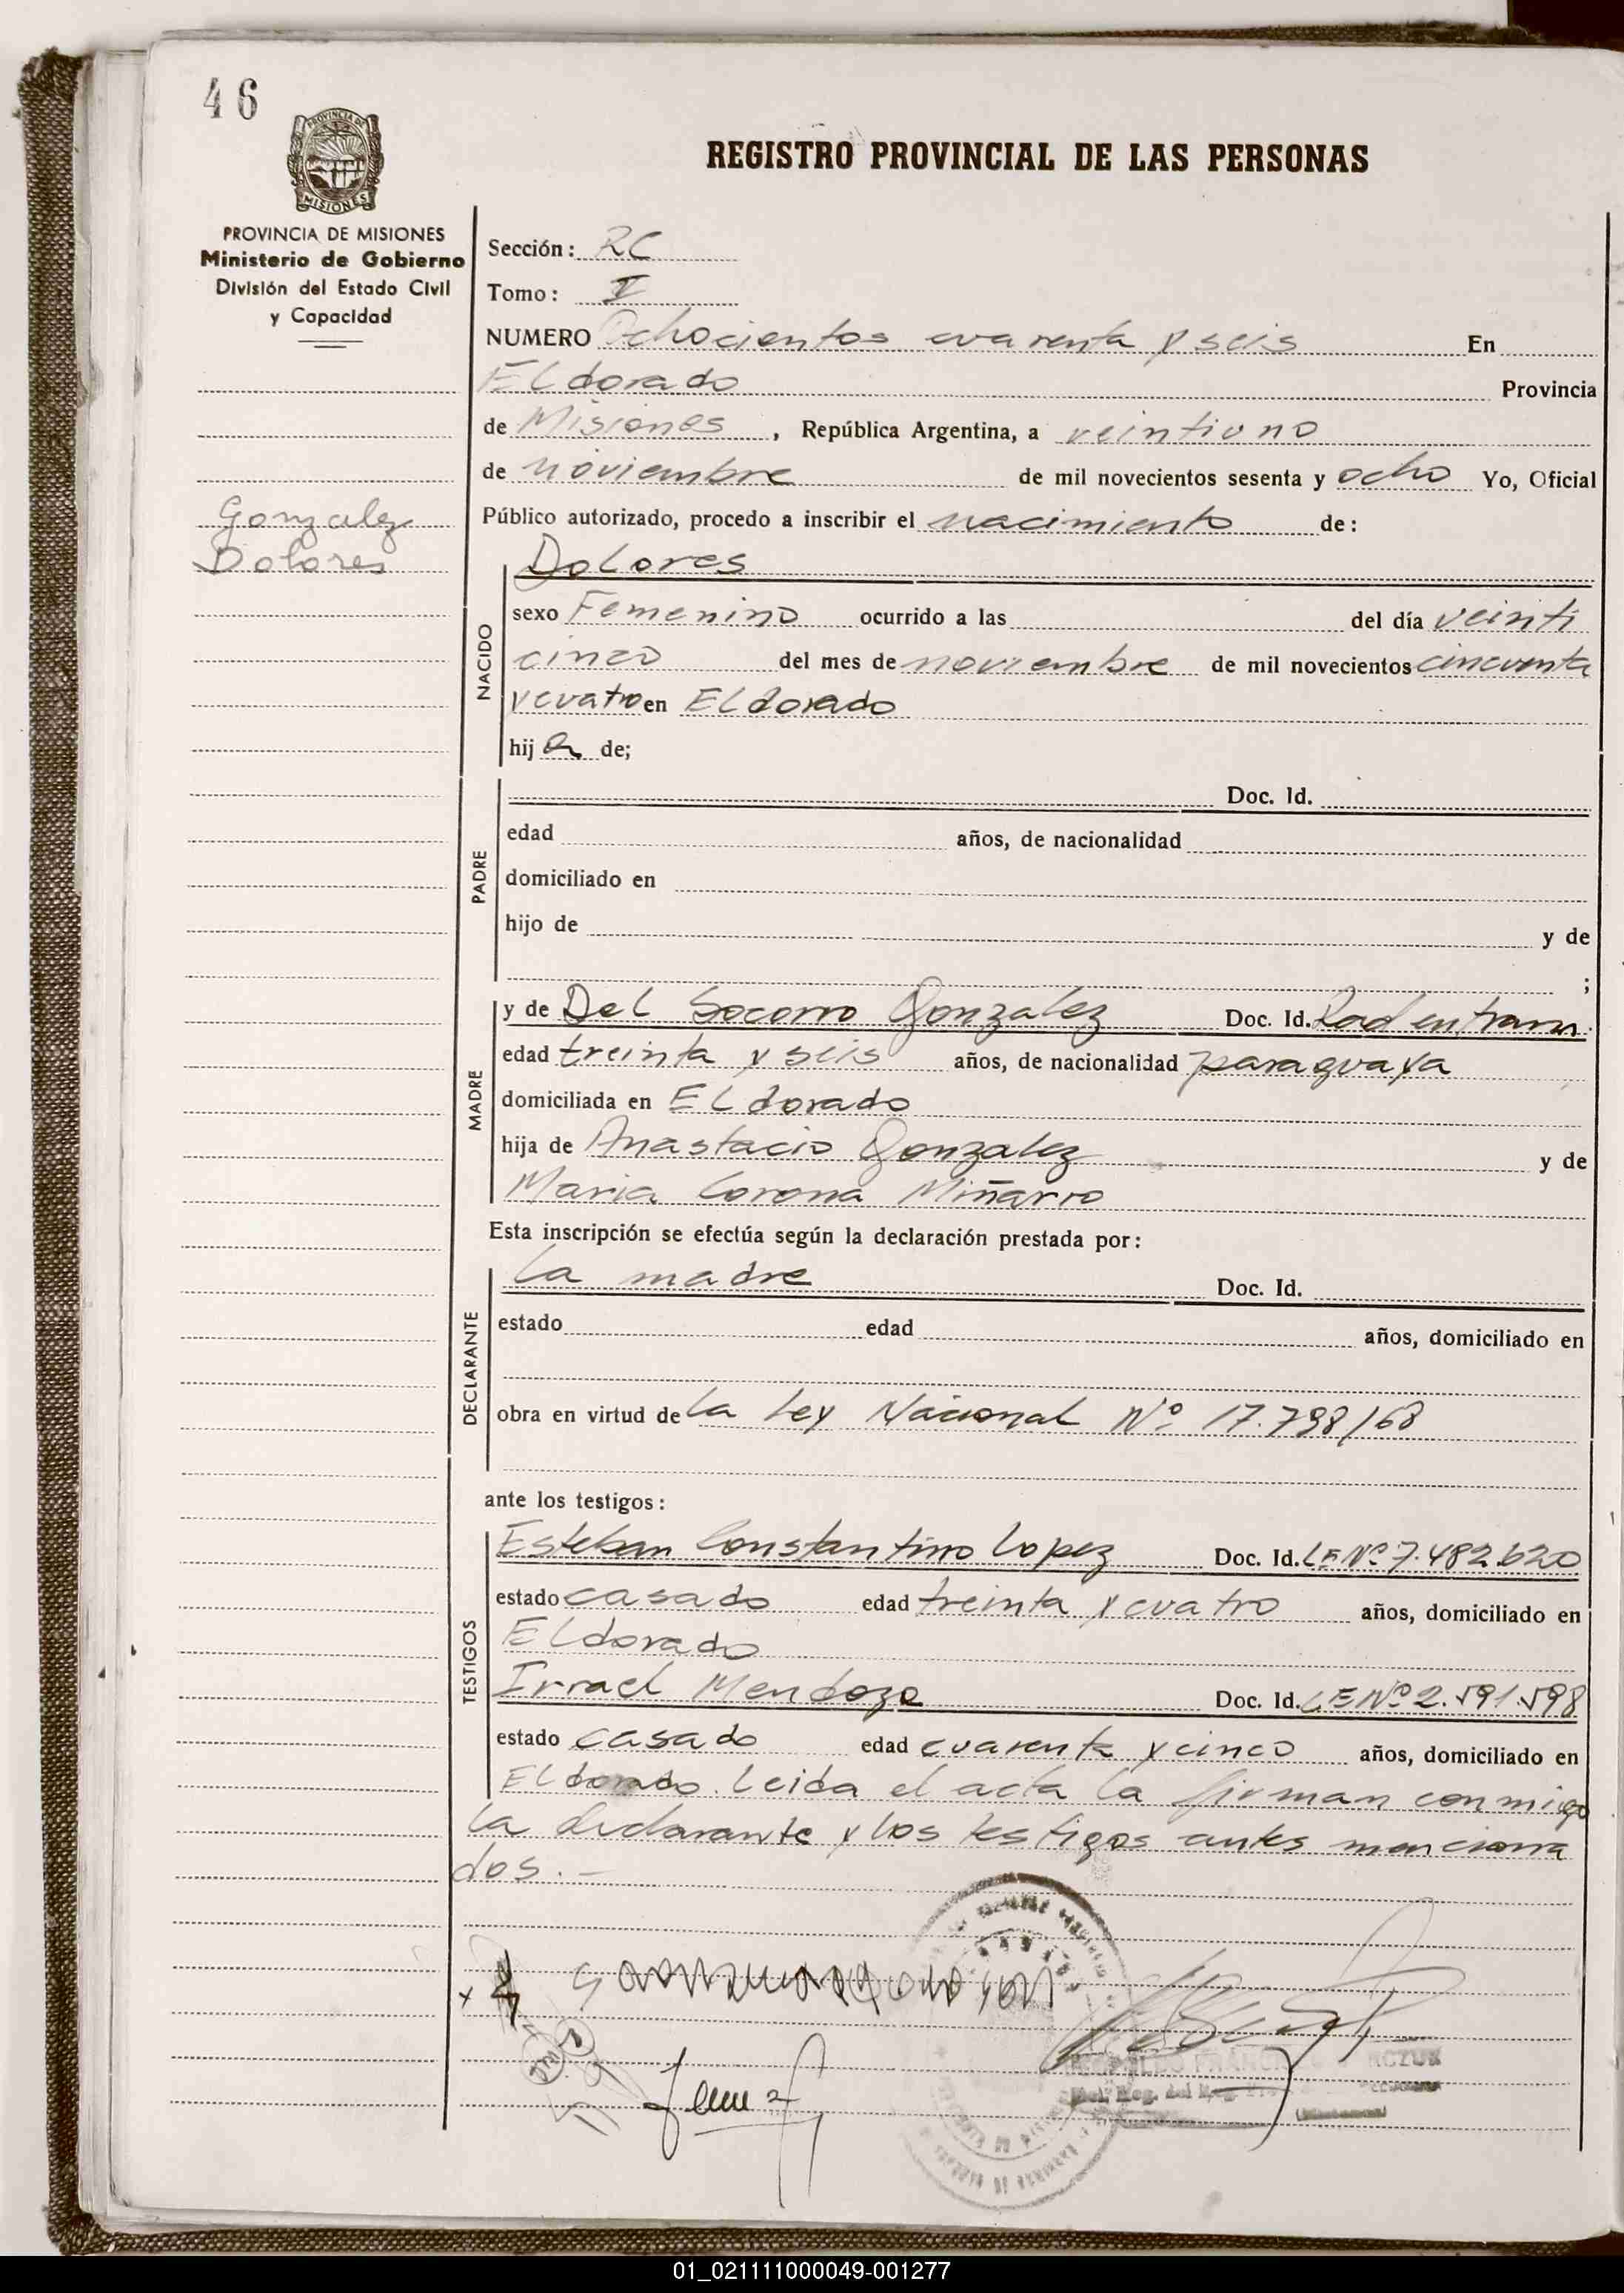 46
PROVINCIA DE
MISIONES
REGISTRO PROVINCIAL DE LAS PERSONAS
PROVINCIA DE MISIONES
Ministerio de Gobierno
División del Estado Civil
y Capacidad
Gonzalez
Dolores
Sección: RC
Tomo: V
NUMERO Ochocientos cuarenta y seis En
Eldorado Provincia
de Misiones, República Argentina, a veintiuno
de noviembre de mil novecientos sesenta y ocho Yo, Oficial
Público autorizado, procedo a inscribir el nacimiento de:
NACIDO
Dolores
sexo Femenino ocurrido a las del día veinti
cinco del mes de noviembre de mil novecientos cincuenta
y cuatro en Eldorado
hija de;
PADRE
Doc. Id.
edad años, de nacionalidad
domiciliado en
hijo de y de
;
MADRE
y de Del Socorro Gonzalez Doc. Id. Rad en tram.
edad treinta y seis años, de nacionalidad paraguaya
domiciliada en Eldorado
hija de Anastacio Gonzalez y de
Maria Corona Miñarro
Esta inscripción se efectúa según la declaración prestada por:
DECLARANTE
La madre Doc. Id.
estado edad años, domiciliado en
obra en virtud de La Ley Nacional Nº 17.798/68
ante los testigos:
TESTIGOS
Esteban Constantino Lopez Doc. Id. LE Nº 7.482.620
estado casado edad treinta y cuatro años, domiciliado en
Eldorado
Irrael Mendoza Doc. Id. LE Nº 2.591.598
estado casado edad cuarenta y cinco años, domiciliado en
Eldorado. Leida el acta la firman conmigo
la declarante y los testigos antes menciona
dos.-
01_021111000049-001277